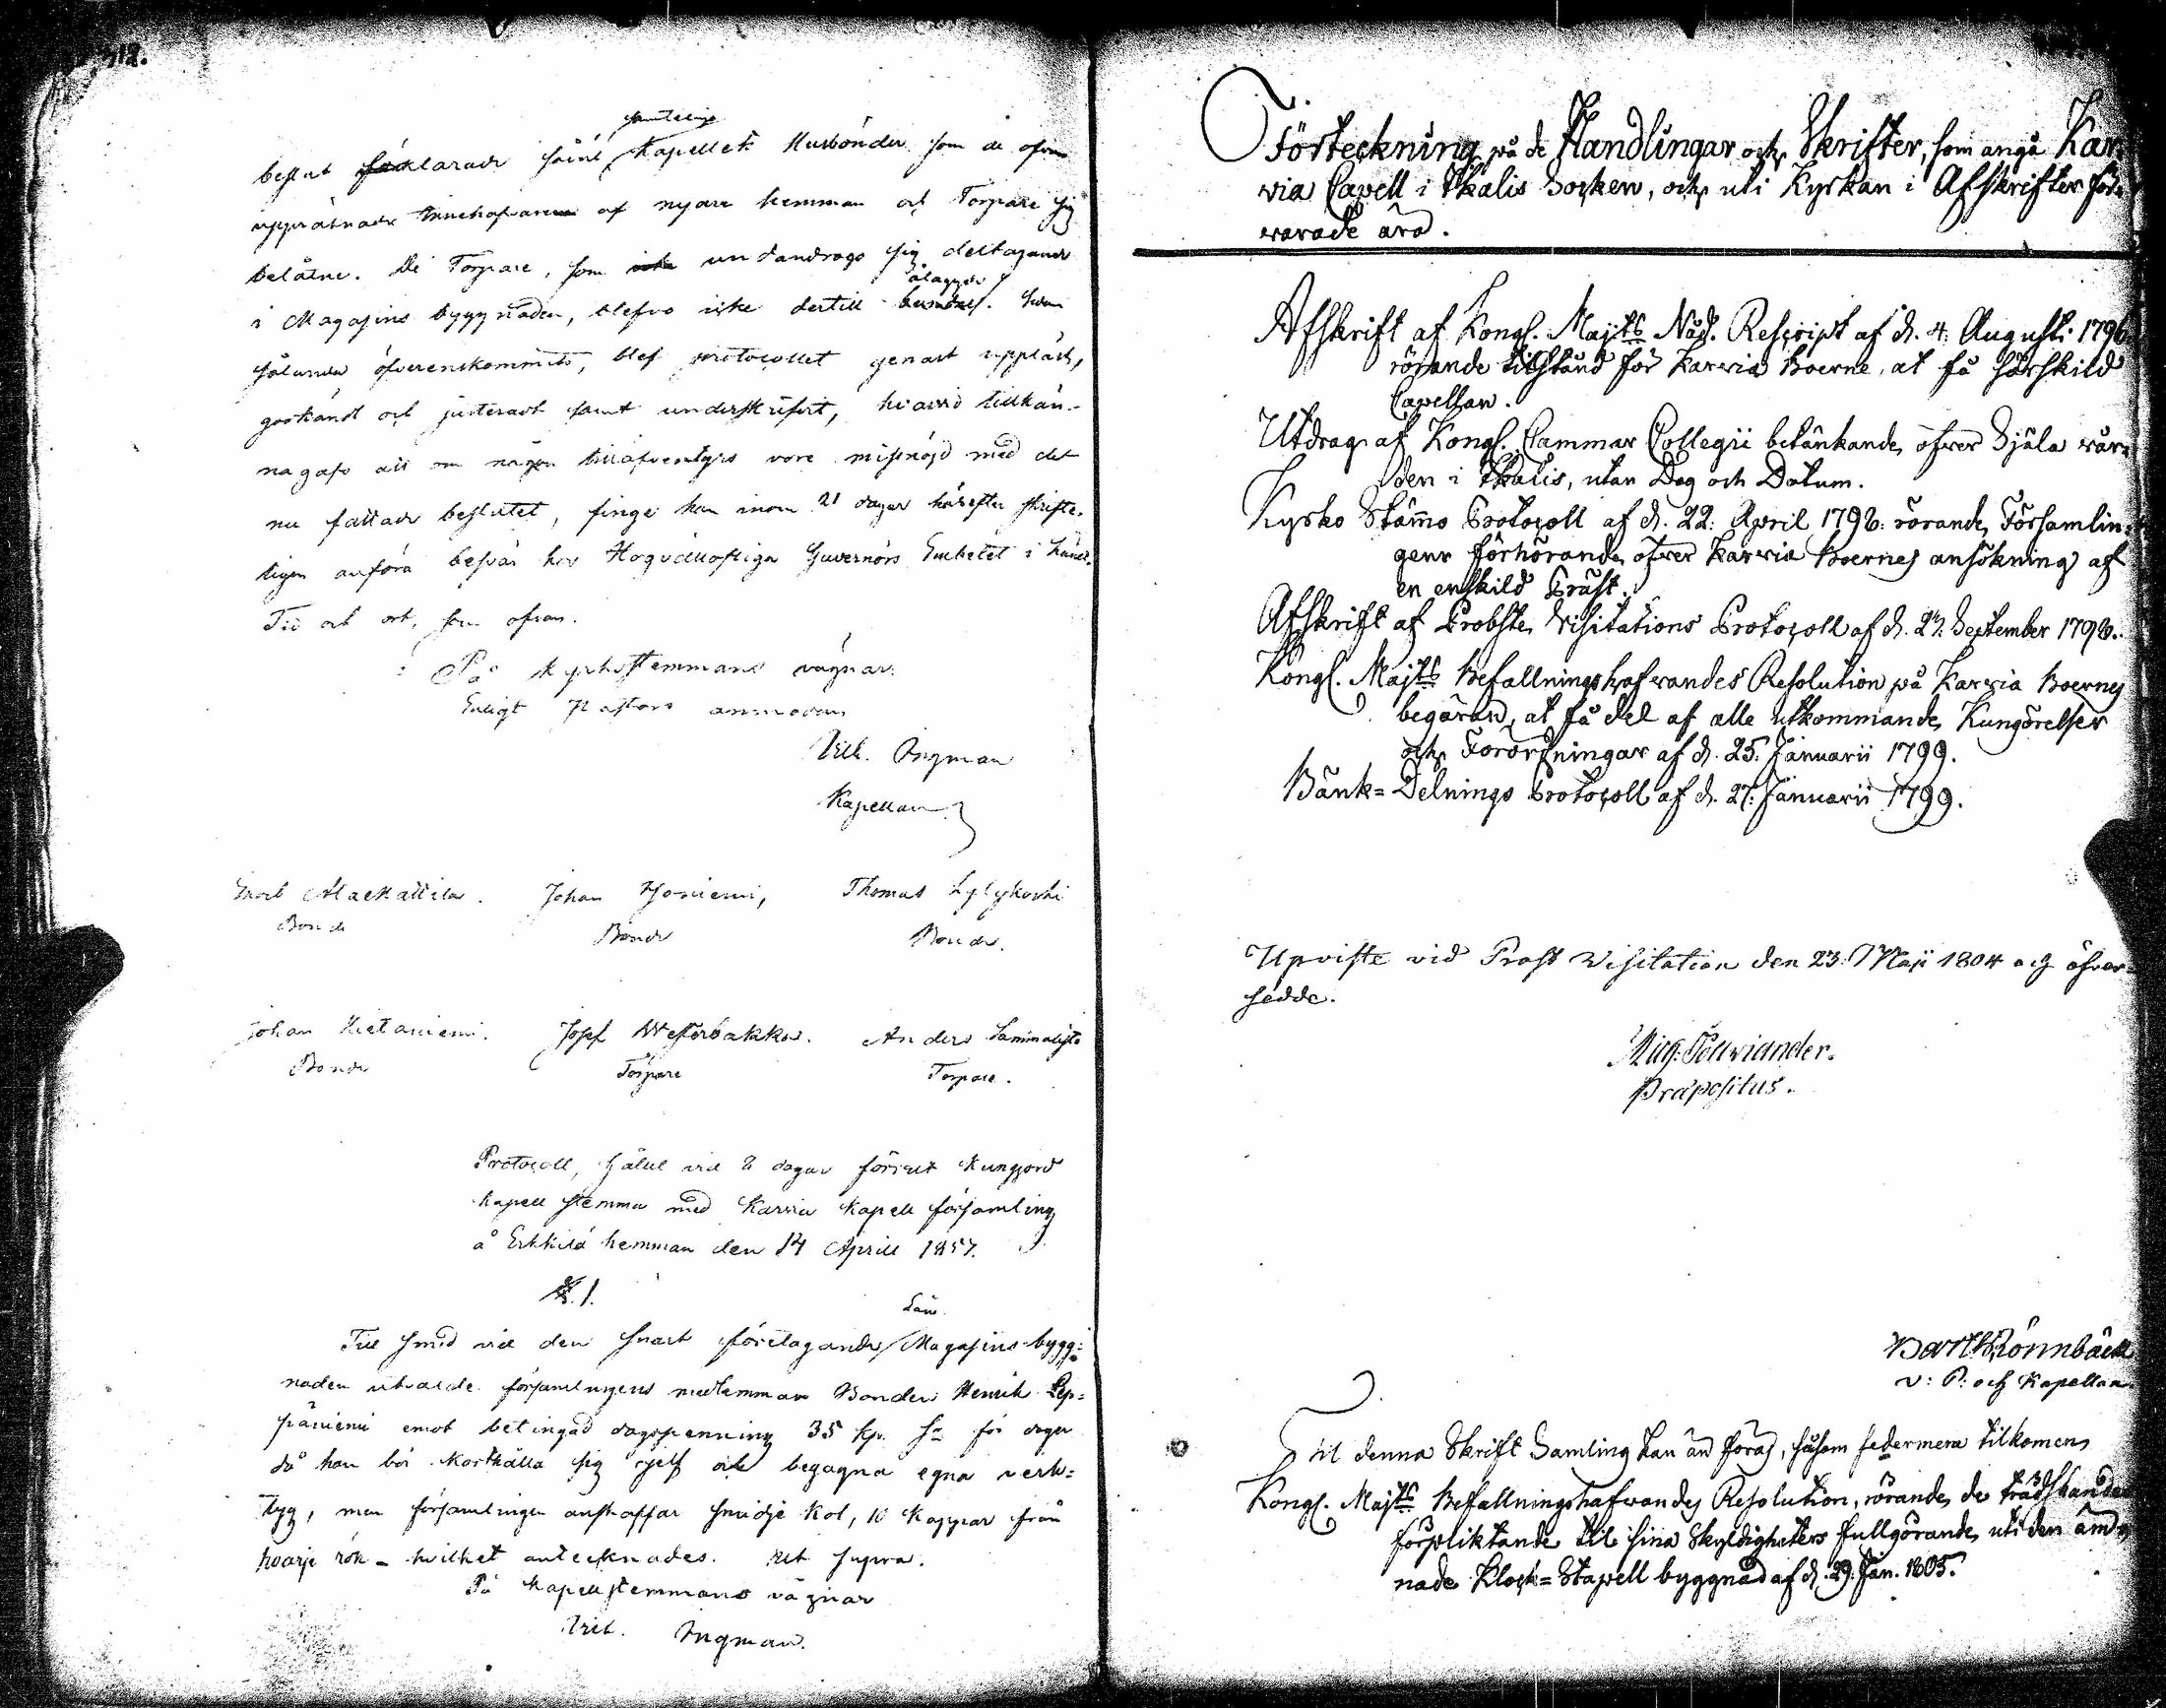 112.
samtelige
beslut förklarade såväl Kapellets Husbönder som de ofvan
uppräknade Innehafvarena af nyare hemman och Torpare sig
belåtne. De Torpare, som icke undandrogo sig deltagande
ålagde
i Magasins byggnaden, blefvo icke dertill. Sedan
sålunda öfverenskommits, blef protocollet genast uppläst,
godkändt och justeradt samt underskrifvit, hvarvid tillkän-
nagafs att om någon tilläfventyrs vore missnöjd med det
nu fattade beslutet, finge han inom 21 dagar härefter skrifte-
ligen anföra besvär hos Högvällofliga Guvernörs Embetet i Länet.
Tid och ort, som ofvan.
På Kyrkostemmans vägnar:
Enligt Pastors anmodan
Vilh. Ingman
Kapellan
Alaskattila. Johan Honiemi, Thomas Lylykoski
Bonde Bonde Bonde.
Johan Hietaniemi. Josef Westerbakka. Anders Sammalisto
Bonde Torpare Torpare.
Protocoll, hållet vid 8 dagar förrut kungjord
kapell stemma med Karvia Kapell församling
å Erkkilä hemman den 14 Aprill 1857.
§. 1.
Låne
Till smed vid den snart företagande Magasins bygg-
naden utvalde församlingens medlemmar Bonden Henrik Lep-
päniemi emot betingad dagspenning 35 kp. Sr för dagen
då han bör kosthålla sig sjelf och begagna egna verk-
tyg, men församlingen anskaffar smidje kol, 10 Kappar från
hvarje rök - hvilket antecknades. Ut supra.
På Kapellstemmans vägnar
Vilh. Ingman.
Förteckning på de Handlingar och Skrifter, som angå Kar-
via Capell i Ikalis Socken, och uti Kyrkan i Afskrifter för-
warade äro.
Afskrift af Kongl. Majts Nåd. Rescript af d. 4. Augusti 1796.
rörande tilstånd för Karvia Boerne, at få särskild
Capellan.
Utdrag af Kongl. Cammar Collegii betänkande öfwer Själa vår-
den i Ikalis, utan Dag och Datum.
Kyrko Stämo Protocoll af d. 22. April 1798. rörande Församlin-
gens förhörande öfwer Karvia Boernes ansökning af
en enskild Präst.
Afskrift af Probste Visitations Protocoll af d. 27. September 1798.
Kongl. Majts Befallningshafvandes Resolution på Karvia Boernes
begäran, at få del af alle utkommande Kungörelser
och Förordningar af d. 25. Januarii 1799.
Bänk-Delnings Protocoll af d. 27. Januarii 1799.
Upviste vid Prost Visitation den 23. Maji 1804 och öfver-
sedde.
Mich. Tolwiander.
Præpositus.
Barth. Rönnbäck
v: P: och Kapellan.
Til denna Skrift Samling kan än föras, såsom sedermera tilkomen
Kongl. Majts Befallningshafvandes Resolution, rörande de
förpliktande til sina Skyldigheters fullgörande uti den ämd-
nade Klock-Stapell byggnad af d. 29. Jan. 1805.